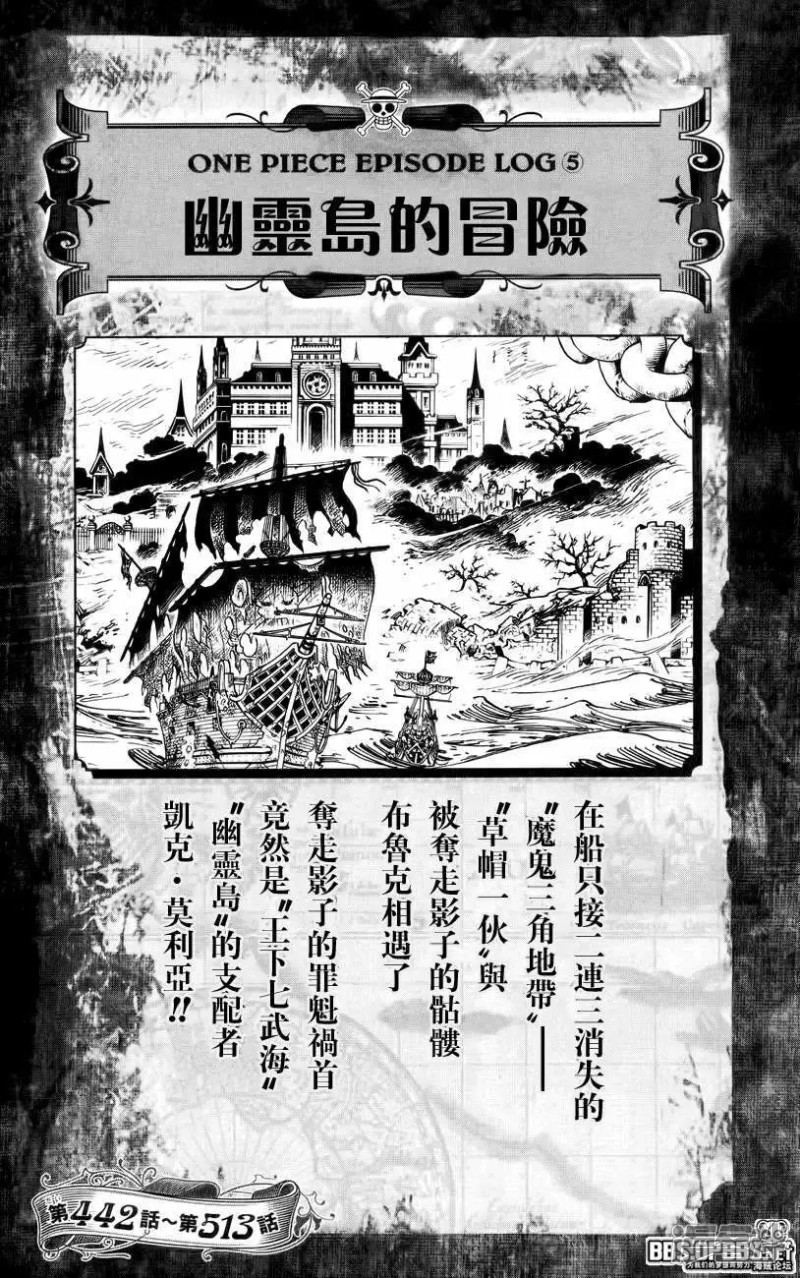 ONE PIECE EPISODE LOG⑤
幽靈島的冒險
在船只接二連三消失的
〝魔鬼三角地帶〞——
〝草帽一伙〞與
被奪走影子的骷髏
布魯克相遇了
奪走影子的罪魁禍首
竟然是〝王下七武海〞
〝幽靈島〞的支配者
凱克・莫利亞!!
第442話～第513話
BBS.OPBBS.NET
为我们的梦想而努力 海贼论坛